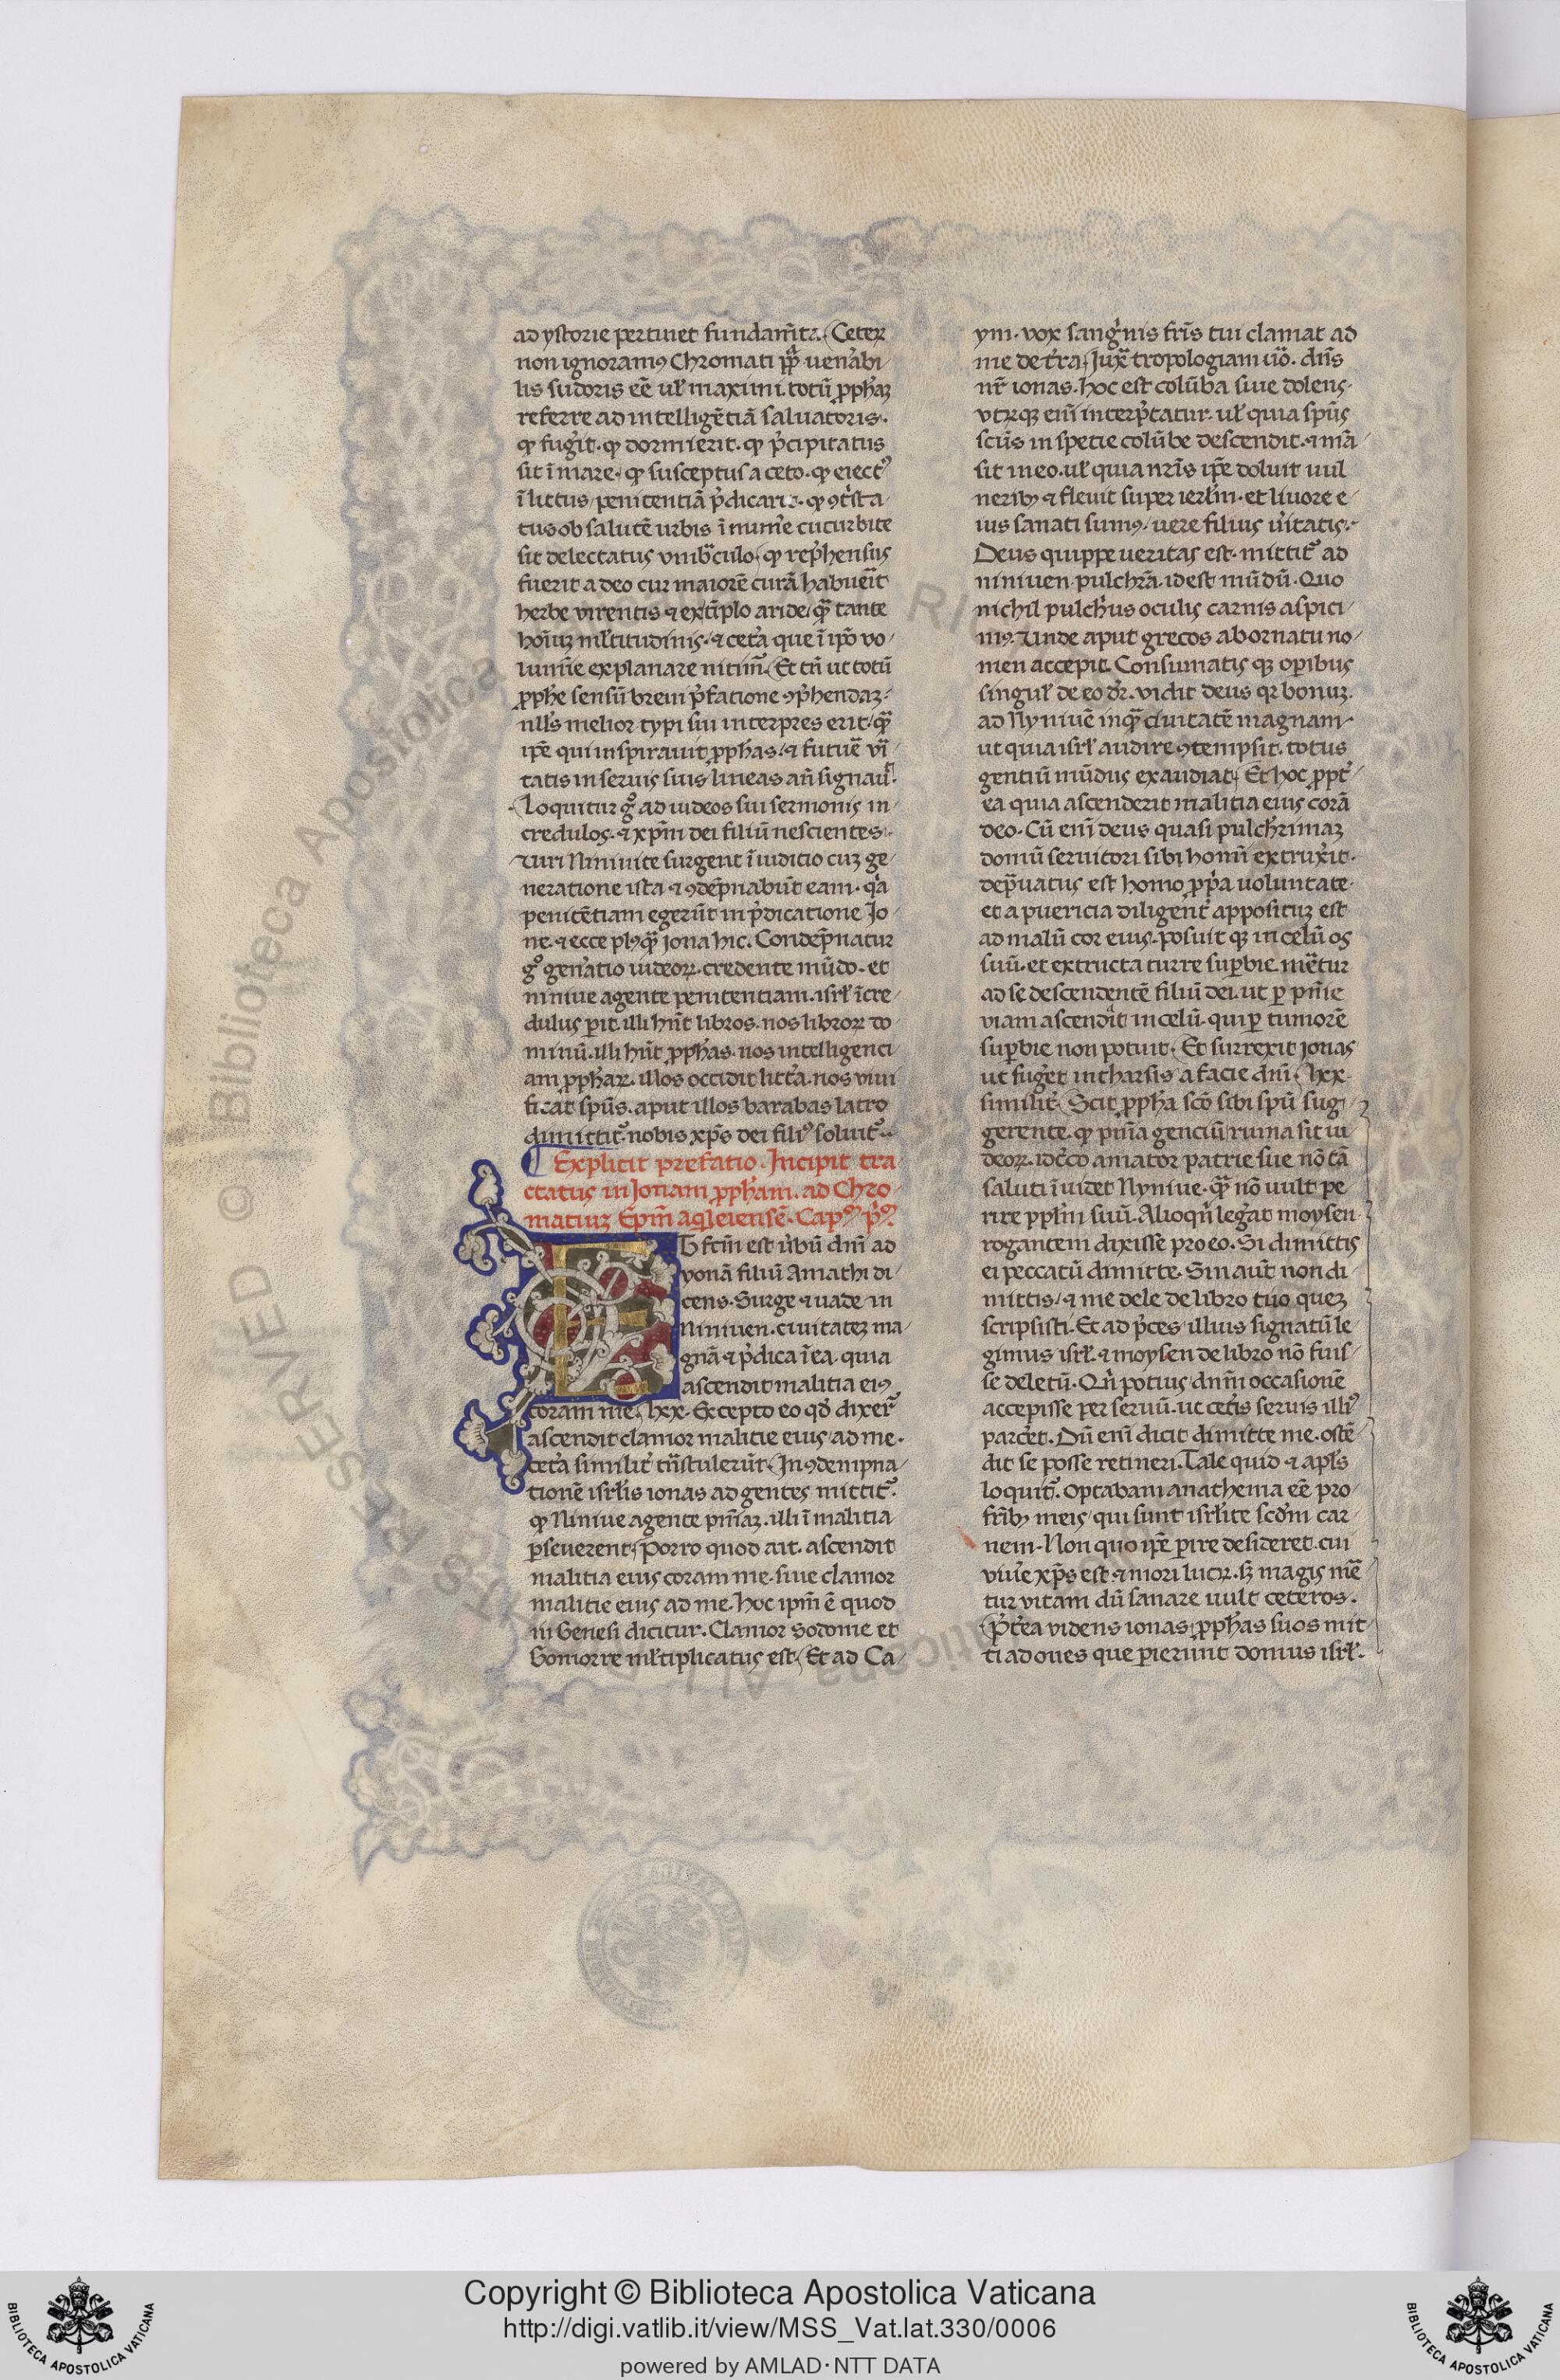 ad ystorie pertinet fundam̄ta. Ceteꝝ
non ignoramꝰ Chromati pp̄ uen̄abi
lis sudoris eē uꝉ maximi. totū ꝓph̄aꝫ
referre ad intelligētiā saluatoris.
ꝙ fug̓it. ꝙ dormierit. ꝙ p̄cipitatus
sit ī mare. ꝙ susceptus a ceto. ꝙ eiectꝰ
ī littus penitentiā p̄dicarit. ꝙ ꝯtrista
tus ob salutē urbis īnum̓e cucurbite
sit delectatus umb̄culo. ꝙ rep̄hensus
fuerit a deo cur maiorē curā habuēit
herbe virentis ⁊ extīplo aride, ꝙ̄ tante
hoīuꝫ mꝉtitudinis. ⁊ cet̄a que ī ip̄o vo
lumīe explanare nitim̄. Et tn̄ ut totū
ꝓphe sensū breui p̄fatione ꝯp̄hendaꝫ
nll̓s melior typi sui interpres erit, ꝙ̄
ip̄e qui inspirauit ꝓph̄as, ⁊ futuē vī
tatis in seruis suis lineas an̄ signauͭ.
Loquitur gͦ ad iudeos sui sermonis in
credulos. ⁊ xp̄m dei filiū nescientes.
Viri Niniuite surgent ī iuditio cuꝫ ge
neratione ista ⁊ ꝯdēpnabūt eam. q̓a
penitētiam egerūt in p̄dicatione Jo
ne. ⁊ ecce plꝰꝙ̄ jona hic. Condēpnatur
gͦ gen̄atio iudeoꝝ. credente mūdo. et
niniue agente penitentiam. isrꝉ īcre
dulus ꝑit. illi hn̄t libros. nos libroꝝ do
minū. illi hn̄t ꝓph̄as. nos intelligenci
am ꝓph̄aꝝ. illos occidit litt̄a. nos viui
ficat sp̄us. aput illos barabas latro
dimittit᷑. nobis xp̄s dei filiꝰ soluit᷑.
Explicit prefatio. Incipit tra
ctatus in Jonam ꝓph̄am. ad Chro
matiuꝫ Ep̄m aq̓leiensē. Capᵐ p̓ᵐ.
ET fc̄m est u̓bū dn̄i ad
yonā filiū Amathi di
cens. Surge ⁊ uade in
Niniuen. ciuitateꝫ ma
gnā ⁊ p̄dica ī ea. quia
ascendit malitia eiꝰ
coram me. lxx. Excepto eo qd̓ dixer̄
ascendit clamor malitie eius, ad me.
cet̄a similit̓ tn̄stulerūt. In ꝯdempna
tionē isrꝉis ionas ad gentes mittit᷑.
ꝙ Niniue agente pn̄iaꝫ. illi ī malitia
ꝑseuerent. Porro quod ait. ascendit
malitia eius coram me. siue clamor
malitie eius ad me. hoc ip̄m ē quod
in Genesi dicitur. Clamor sodome et
Gomorre mꝉtiplicatus est. Et ad Ca
ym. vox sang̓nis fr̄is tui clamat ad
me de t̓ra. Juxͣ tropologiam u̓o. dn̄s
nr̄ ionas. hoc est colūba siue dolens.
vtꝝqꝫ enī interp̄tatur. uꝉ quia sp̄us
sc̄us in spetie colūbe descendit. ⁊ mā
sit in eo. uꝉ quia nr̄is ip̄e doluit uul
neribꝫ ⁊ fleuit super ierlm̄. et liuore e
ius sanati sumꝰ. uere filius u̓itatis.
Deus quippe ueritas est. mittit᷑ ad
niniuen pulchrā. id est mūdū. Quo
nichil pulchr̓us oculis carnis aspici
mꝰ. Unde aput grecos ab ornatu no
men accepit. Consumatis qꝫ oꝑibus
singul̓ de eo dr̄. vidit deus qꝛ bonuꝫ.
ad Nyniuē inꝙ̄ ciuitatē magnam
ut quia isrꝉ audire ꝯtempsit. totus
gentiū mūdus exaudiat. Et hoc ꝓpt̓
ea quia ascenderit malitia eius corā
deo. Cū enī deus quasi pulcherrimaꝫ
domū seruitori sibi homī extruxit.
dep̄uatus est homo ꝓp̓a uoluntate.
et a puericia diligent̓ appositūꝫ est
ad malū cor eius. posuit qꝫ in celū os
suū. et extructa turre suꝑbie. mēt̓ur
ad se descendentē filiū dei. ut ꝑ pn̄ie
viam ascendat in celū. qui ꝑ tumorē
suꝑbie non potuit. Et surrexit jonas
ut fug̓et in tharsis a facie dn̄i. lxx.
similit̓. Scit ꝓph̄a sc̄o sibi sp̄u sug
gerente. ꝙ pn̄ia genciū ruina sit iu
deoꝝ. idc̓co amator patrie sue nō tā
saluti īuidet Nyniue. ꝙ̄ nō uult pe
rire ppl̄m suū. Alioqn̓ legat moysen
rogantem dixisse pro eo. Si dimittis
ei peccatū dimitte. Sin aūt non di
mittis, ⁊ me dele de libro tuo queꝫ
scripsisti. Et ad p̄ces illius signatū le
gimus isrꝉ. ⁊ moysen de libro nō fuis
se deletū. Qn̓ potius dn̄m occasionē
accepisse per seruū. ut cet̓is seruis illiꝰ
parc̓et. Dū enī dicit dimitte me. ostē
dit se posse retineri. Tale quid ⁊ apl̄s
loquit᷑. optabam anathema eē pro
fr̄ibꝫ meis, qui sunt isrꝉite scd̓m car
nem. Non quo ip̄e ꝑire desideret. cui
viu̓e xp̄s est. ⁊ mori lucꝝ. sꝫ magis mēͤ
tur vitam dū sanare uult ceteros.
P̄t̓ea videns ionas ꝓph̄as suos mit
ti ad oues que ꝑierunt domus isrꝉ.
Copyright © Biblioteca Apostolica Vaticana
http://digi.vatlib.it/view/MSS_Vat.lat.330/0006
powered by AMLAD·NTT DATA
BIBLIOTECA APOSTOLICA VATICANA
BIBLIOTECA APOSTOLICA VATICANA